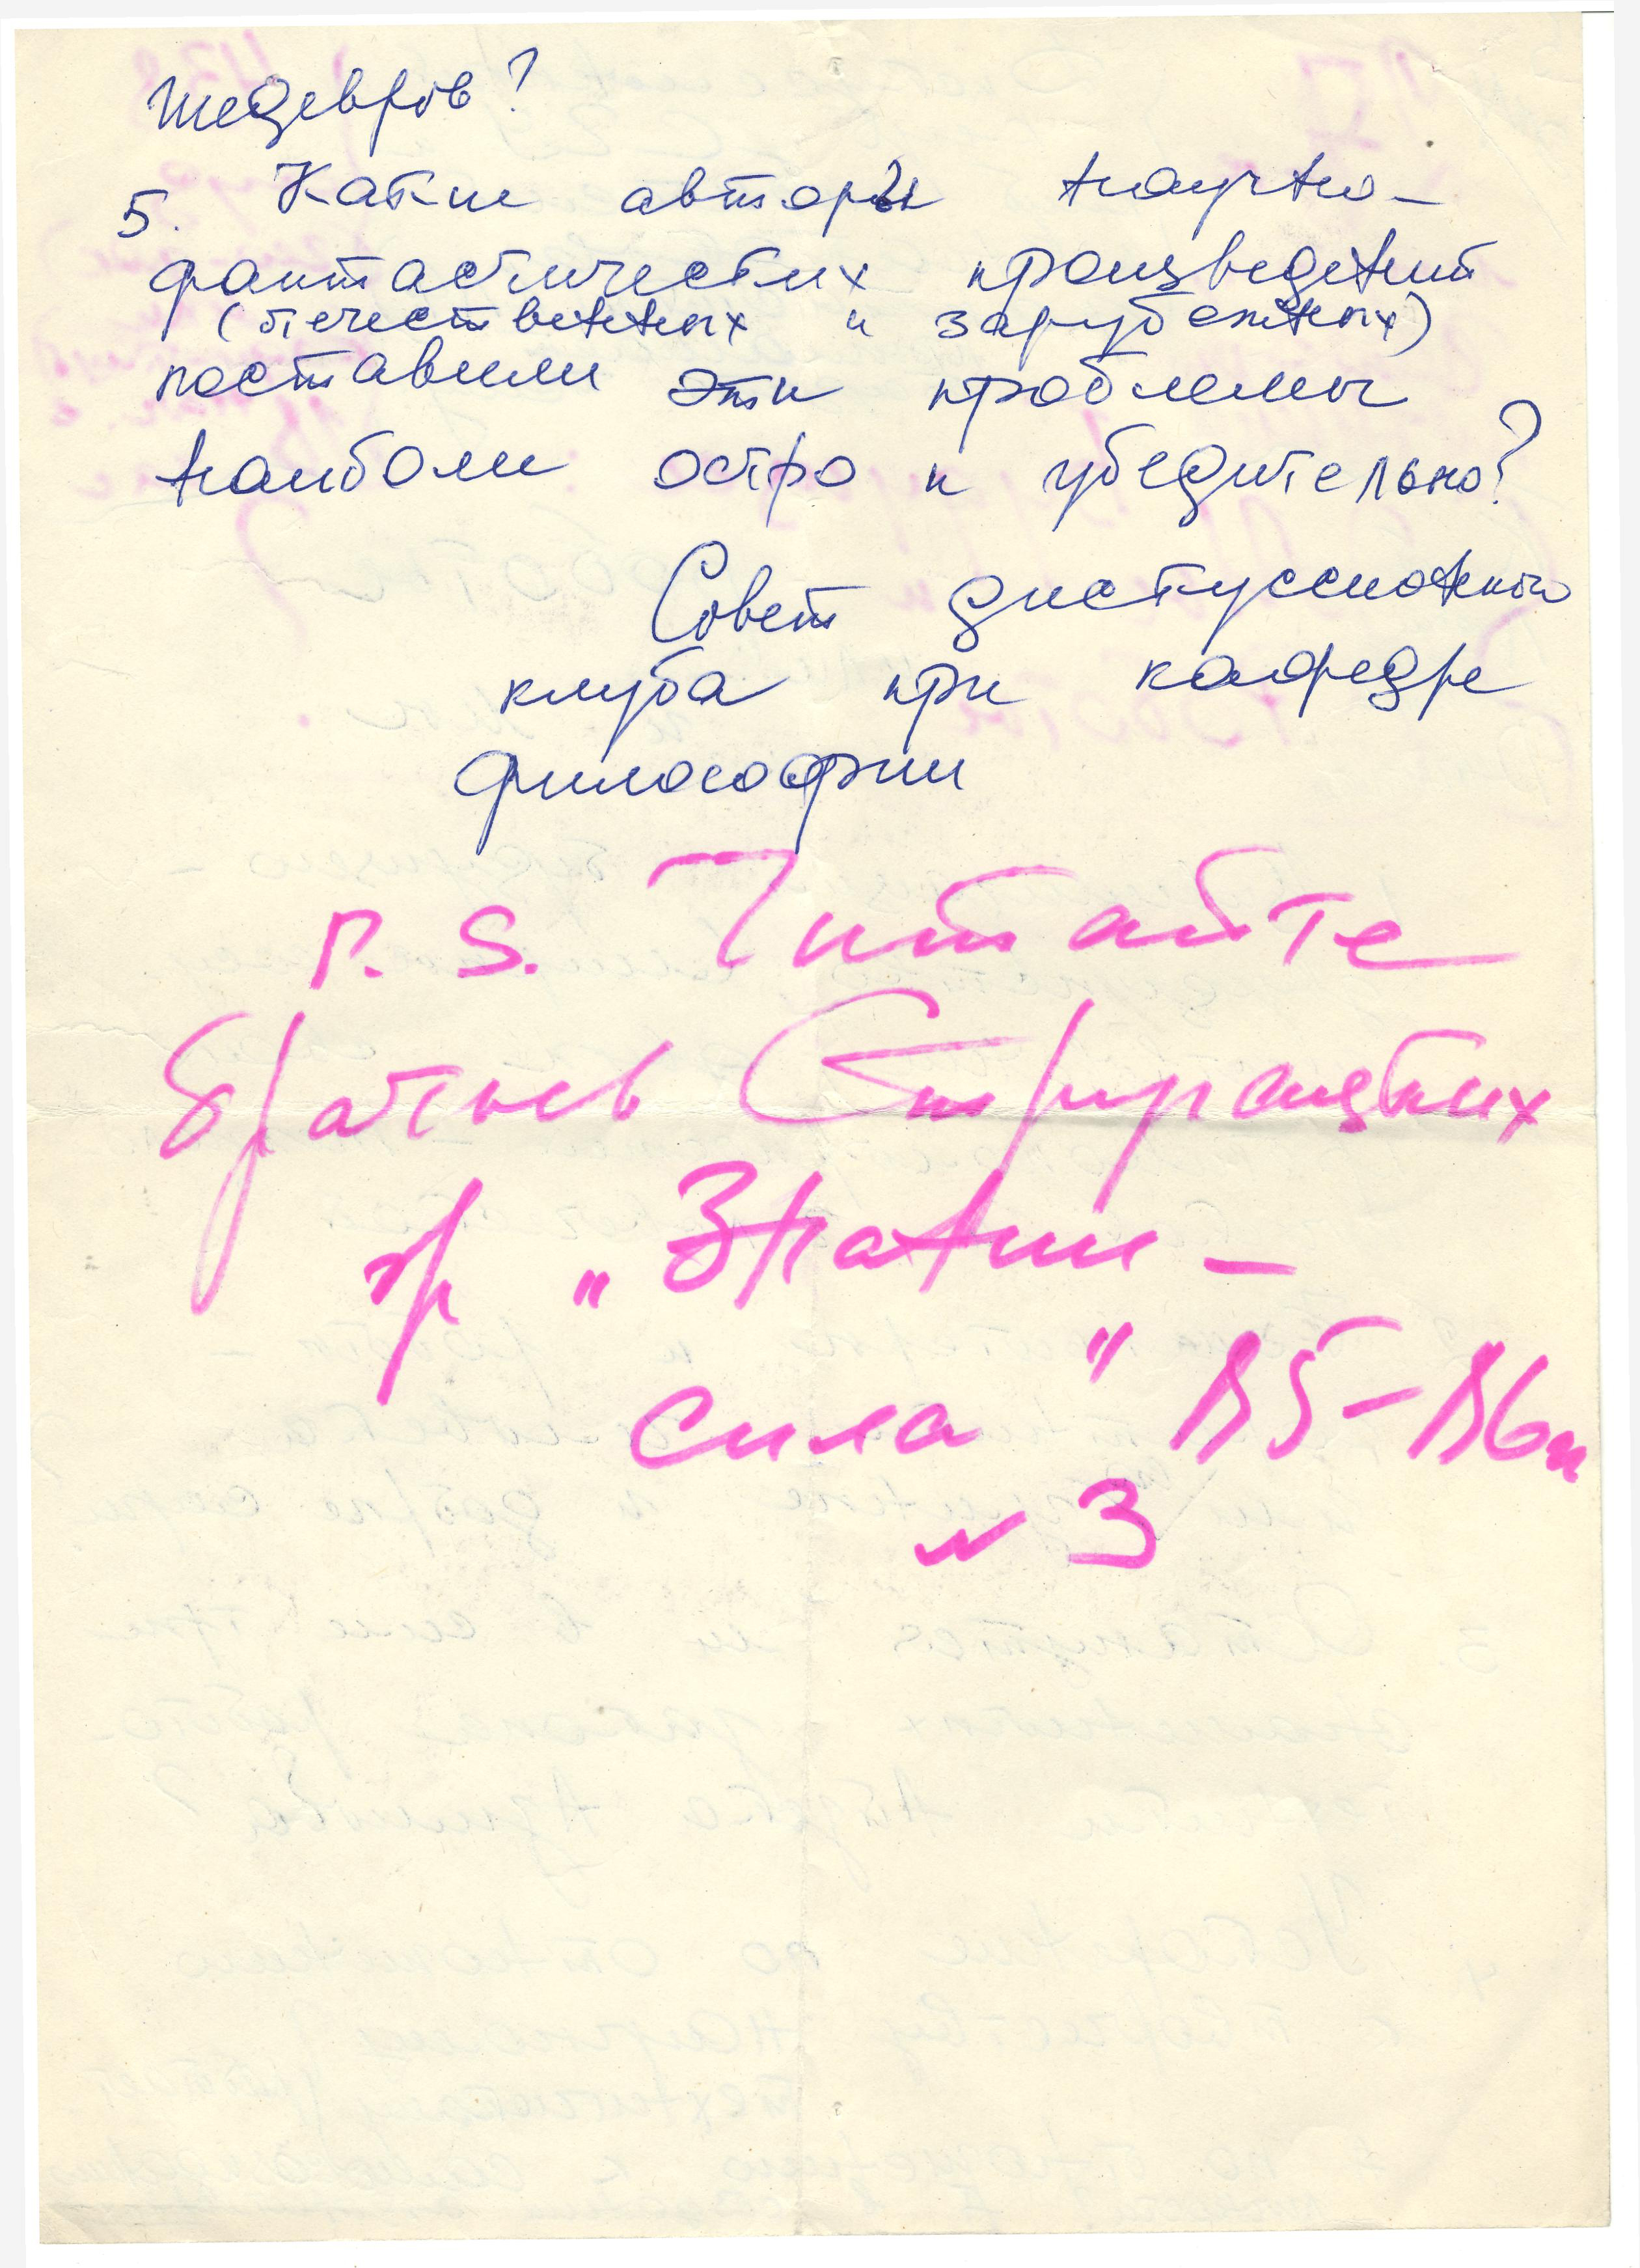 шедевров?
5. Какие авторы научно-
фантастических произведений
(отечественных и зарубежных)
поставили эти проблемы
наиболее остро и убедительно?
Совет дискуссионного
клуба при кафедре
философии
P. S. Читайте
братьев Стругацких
"Знание -
сила"
№ 3